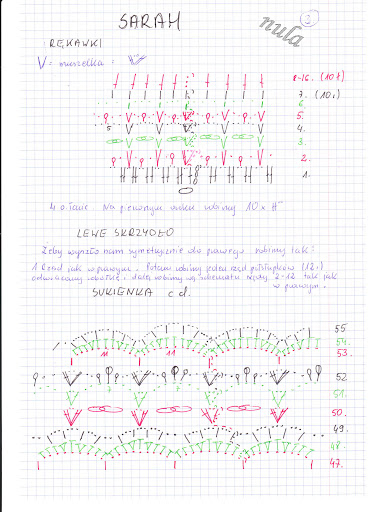 SARAH
nula
2
RĘKAWKI
V = muszelka =
8-16. (10 ł)
7. (10.)
6.
5.
5
4.
3.
2.
1.
4 o. łańc. Na pierwszym oczku robimy 10 x
LEWE SKRZYDŁO
Żeby wyszło nam symetrycznie do prawego robimy tak:
1 rząd jak w prawym. Potem robimy jeden rząd półsłupków (12.)
odwracamy robótkę i dalej robimy wg schematu rzędy 2-12 tak jak
w prawym.
SUKIENKA c.d.
55
54.
11 11 53.
52
51.
50.
49.
48.
47.